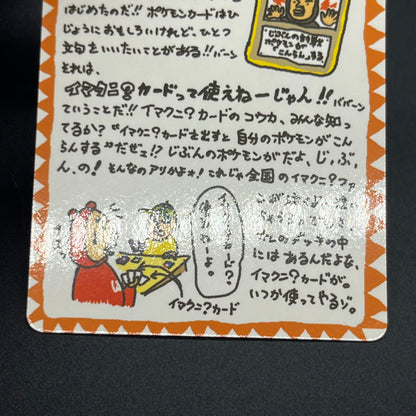 はじめたのだ!! ポケモンカードはひ
じょうにおもしろいけれど、ひとつ
文句をいいたいことがある!! バーン
それは、
イマクニ?カードって使えねーじゃん!! ババーン
ていうことだ!! イマクニ?カードのコウカ、みんな知っ
てるか? “イマクニ?カードを出すと自分のポケモンがこん
らんする”だぜェ!? じぶんのポケモンがだよ、じ、ぶ、
ん、の! そんなのアリかよォ! これじゃ全国のイマクニ?ファ
デッキの中
にはあるんだよな、
イマクニ?カードが。
いつか使ってやるゾ。
イマクニ?カード
じぶんの
ポケモンが
こんらんする